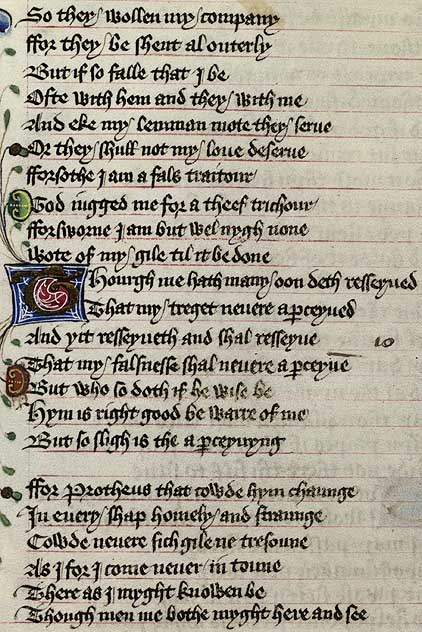 So they wollen my company
ffor they be shent al outerly
But if so falle that I be
Ofte with hem and they with me
And eke my lemman mote they serue
Or they shull not my loue deserue
fforsothe I am a fals traitour
God iugged me for a theef trichour
fforsworne I am but wel nygh none
wote of my gile til it be done
Thourgh me hath many oon deth resseyued
That my treget neuere aperceyued
And yit resseyueth and shal resseyue 10
That my falsnesse shal neuere aperceyue
But who so doth if he wise be
Hym is right good be warre of me
But so sligh is the aperceyuyng
ffor Protheus that cowde hym chaunge
In euery shap homely and straunge
Cowde neuere sich gile ne tresoune
As I for I come neuer in toune
There as I myght knowen be
Though men me bothe myght here and see